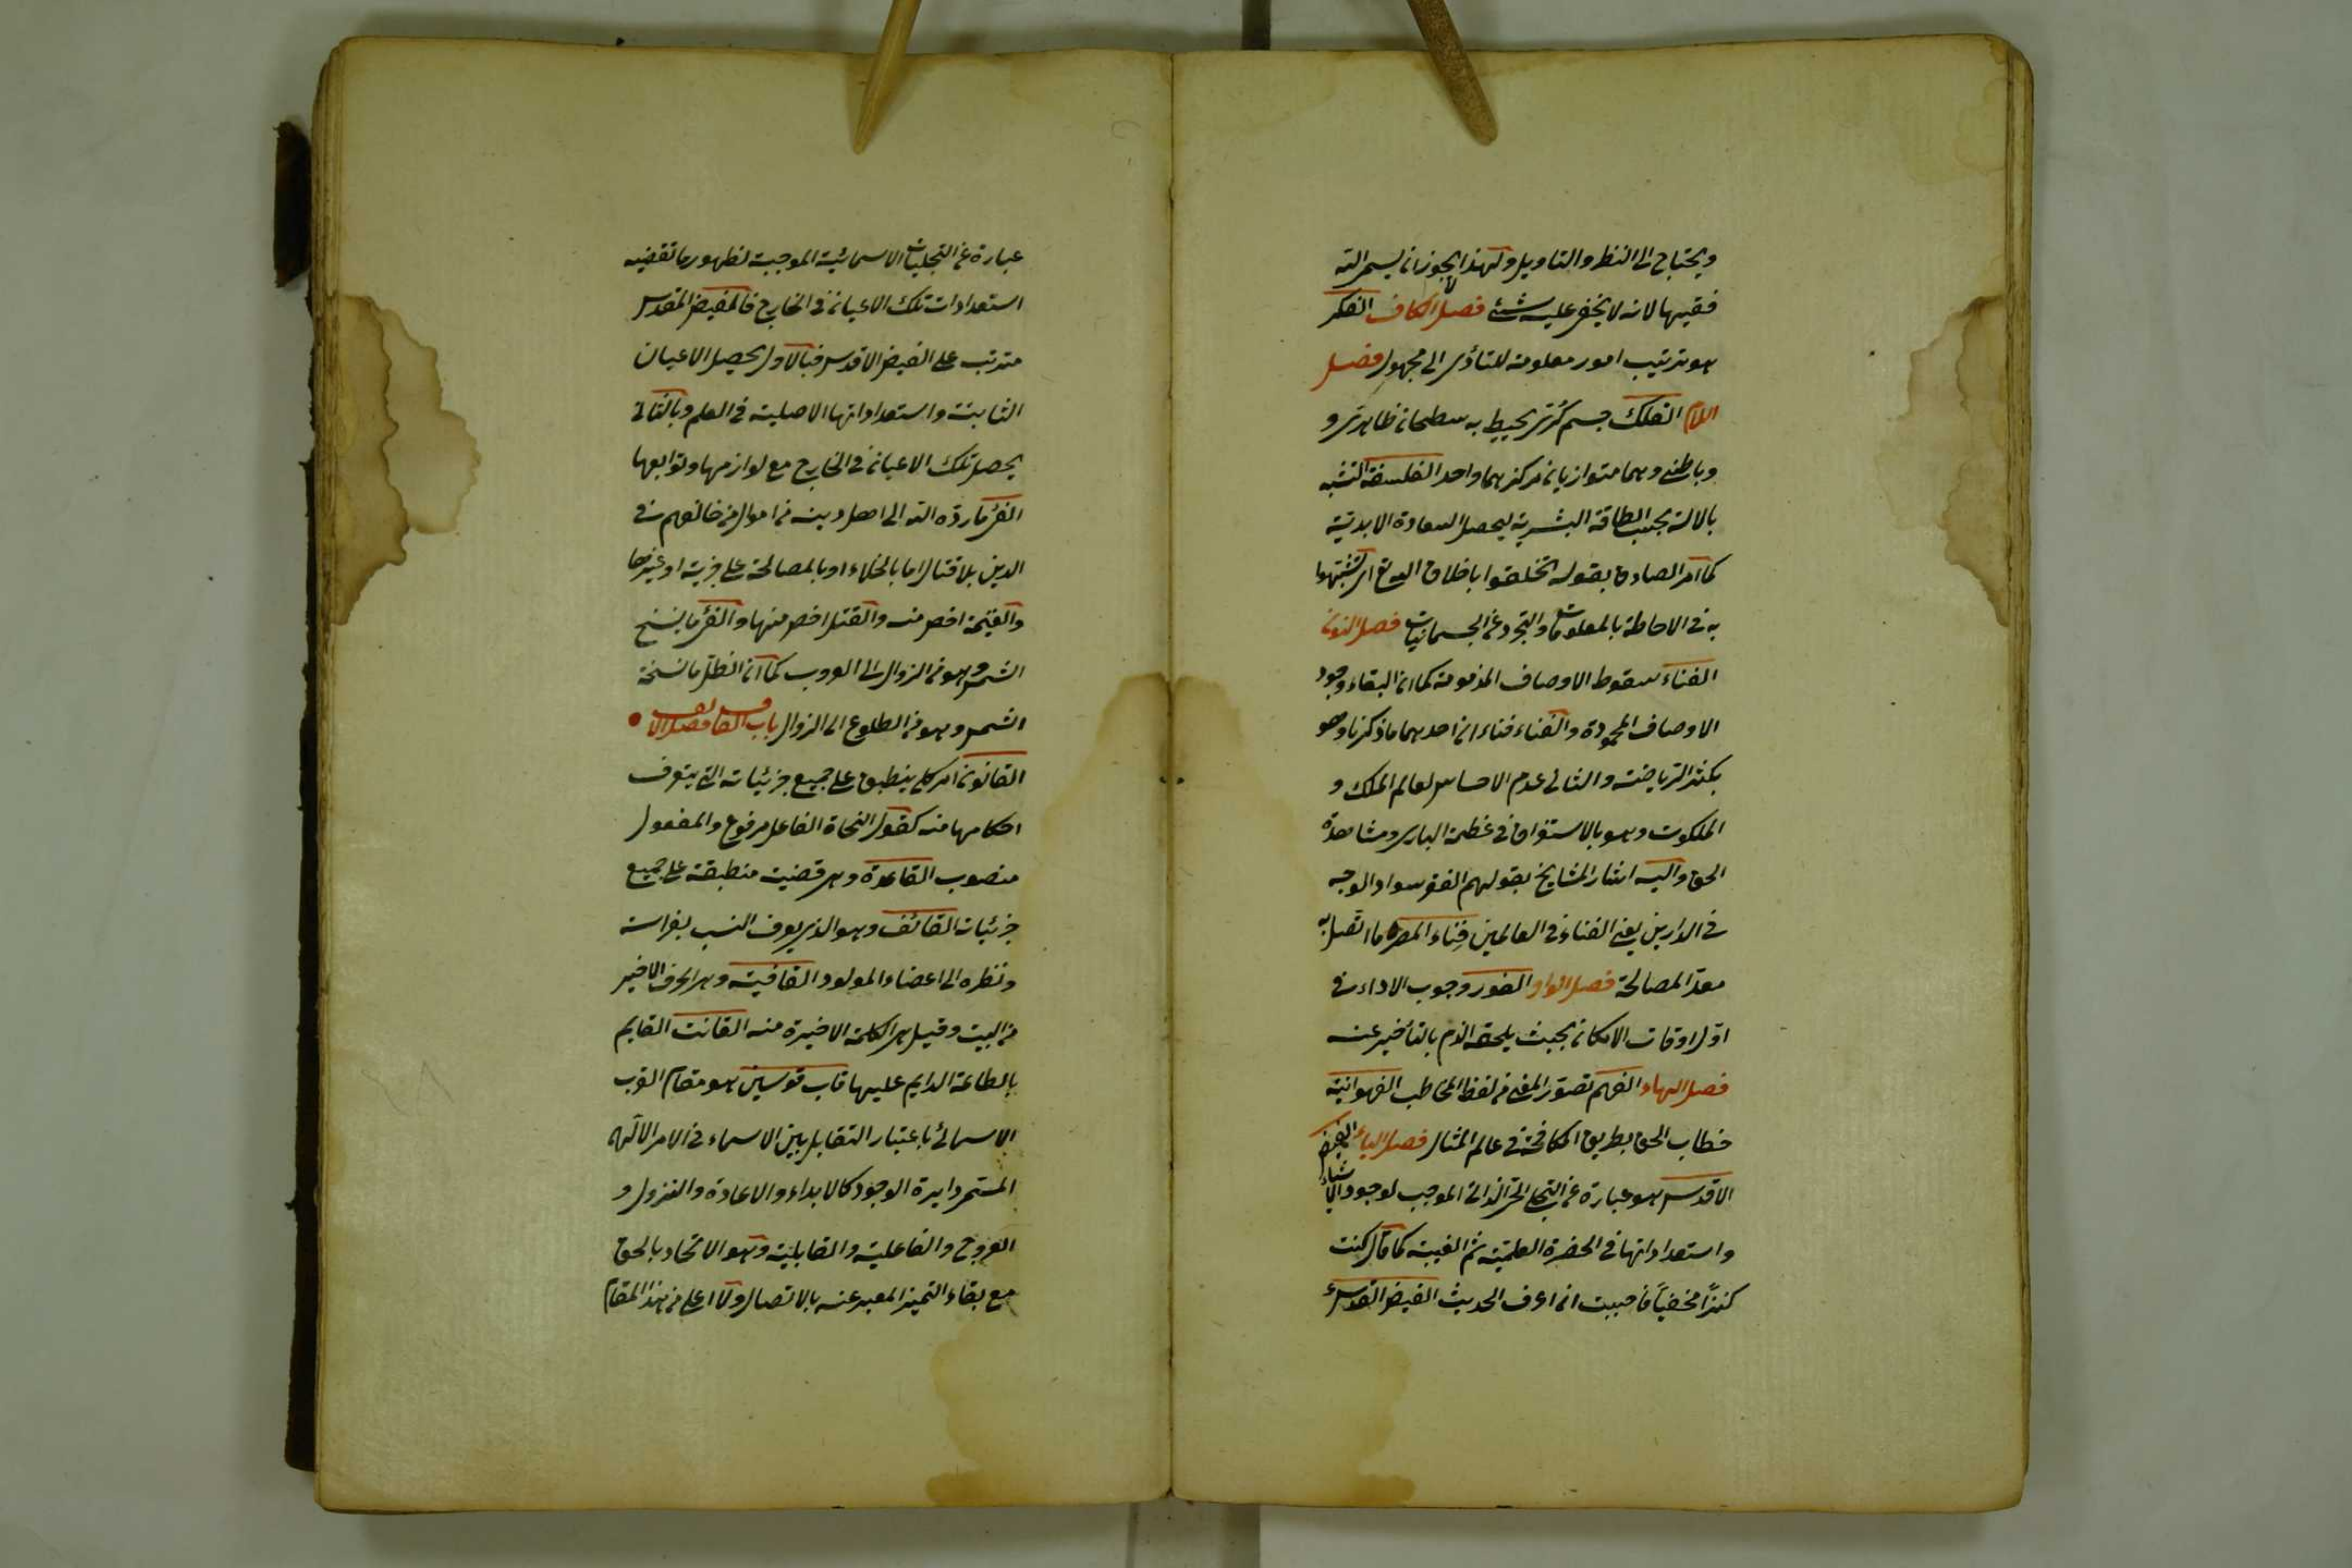 ويحتاج الى النظر والتاويل ولهذا لا يجوز ان يسمى الله
فقيها لانه لا يخفى عليه شئ فصل الكاف الفكر
هو ترتيب امور معلومة للتأدى الى مجهول فصل
اللام الفلك جسم كرى يحيط به سطحان ظاهرى و
وباطنى وهما متوازيان مركزهما واحد الفلسفة التشبه
بالاله بحسب الطاقة البشرية ليحصل السعادة الابدية
كما امر الصادق بقوله تخلقوا باخلاق الله تع اى تشبهوا
به فى الاحاطة بالمعلومات والتجرد عن الجسمانيات فصل النون
الفناء سقوط الاوصاف المذمومة كما ان البقاء وجود
الاوصاف المحمودة والفناء فناءان احدهما ما ذكرنا وهو
بكثرة الرياضة والثانى عدم الاحساس لعالم الملك و
الملكوت وهو بالاستغراق فى عظمة البارى ومشاهدة
الحق واليه اشار المشايخ بقولهم الفقر سواد الوجه
فى الدارين يعنى الفناء فى العالمين فناء المصر ما اتصل به
معدا لمصالحه فصل الواو الفور وجوب الاداء فى
اول اوقات الامكان بحيث يلحقه الذم بالتأخير عنه
فصل الهاء الفهم تصور المعنى من لفظ المخاطب الفهوانية
خطاب الحق بطريق المكافحة فى عالم المثال فصل الياء الفيض
الاقدس هو عبارة عن التجلى الحبى الذاتى الموجب لوجود الاشياء
واستعداداتها فى الحضرة العلمية ثم العينية كما قال كنت
كنزاً مخفياً فاحببت ان اعرف الحديث الفيض المقدس
عبارة عن التجليات الاسمائية الموجبة لظهور ما تقتضيه
استعدادات تلك الاعيان فى الخارج فالفيض المقدس
مترتب على الفيض الاقدس فبالاول يحصل الاعيان
الثابتة واستعداداتها الاصلية فى العلم وبالثانى
يحصل تلك الاعيان فى الخارج مع لوازمها وتوابعها
الفئ ما رده الله الى اهل دينه من اموال من خالفهم فى
الدين بلا قتال اما بالجلاء او بالمصالحة على جزية او غيرها
والغنيمة اخص منه والنفل اخص منها والفئ ما ينسخ
الشمس وهو من الزوال الى الغروب كما ان الظل ما نسخته
الشمس وهو من الطلوع الى الزوال باب القاف فصل الالف
القانون امر كلى ينطبق على جميع جزئياته التى يتعرف
احكامها منه كقول النحاة الفاعل مرفوع والمفعول
منصوب القاعدة وهى قضية منطبقة على جميع
جزئيات القائف وهو الذى يعرف النسب بفراسته
ونظره الى اعضاء المولود القافية وهى الحرف الاخير
من البيت وقيل هى الكلمة الاخيرة منه القانت القايم
بالطاعة الدايم عليها قاب قوسين هو مقام القرب
الاسمائى باعتبار التقابل بين الاسماء فى الامر الالهى
المسمى دايرة الوجود كالابداء والاعادة والنزول و
العروج والفاعلية والقابلية وهو الاتحاد بالحق
مع بقاء التميز المعبر عنه بالاتصال ولا اعلى من هذا المقام